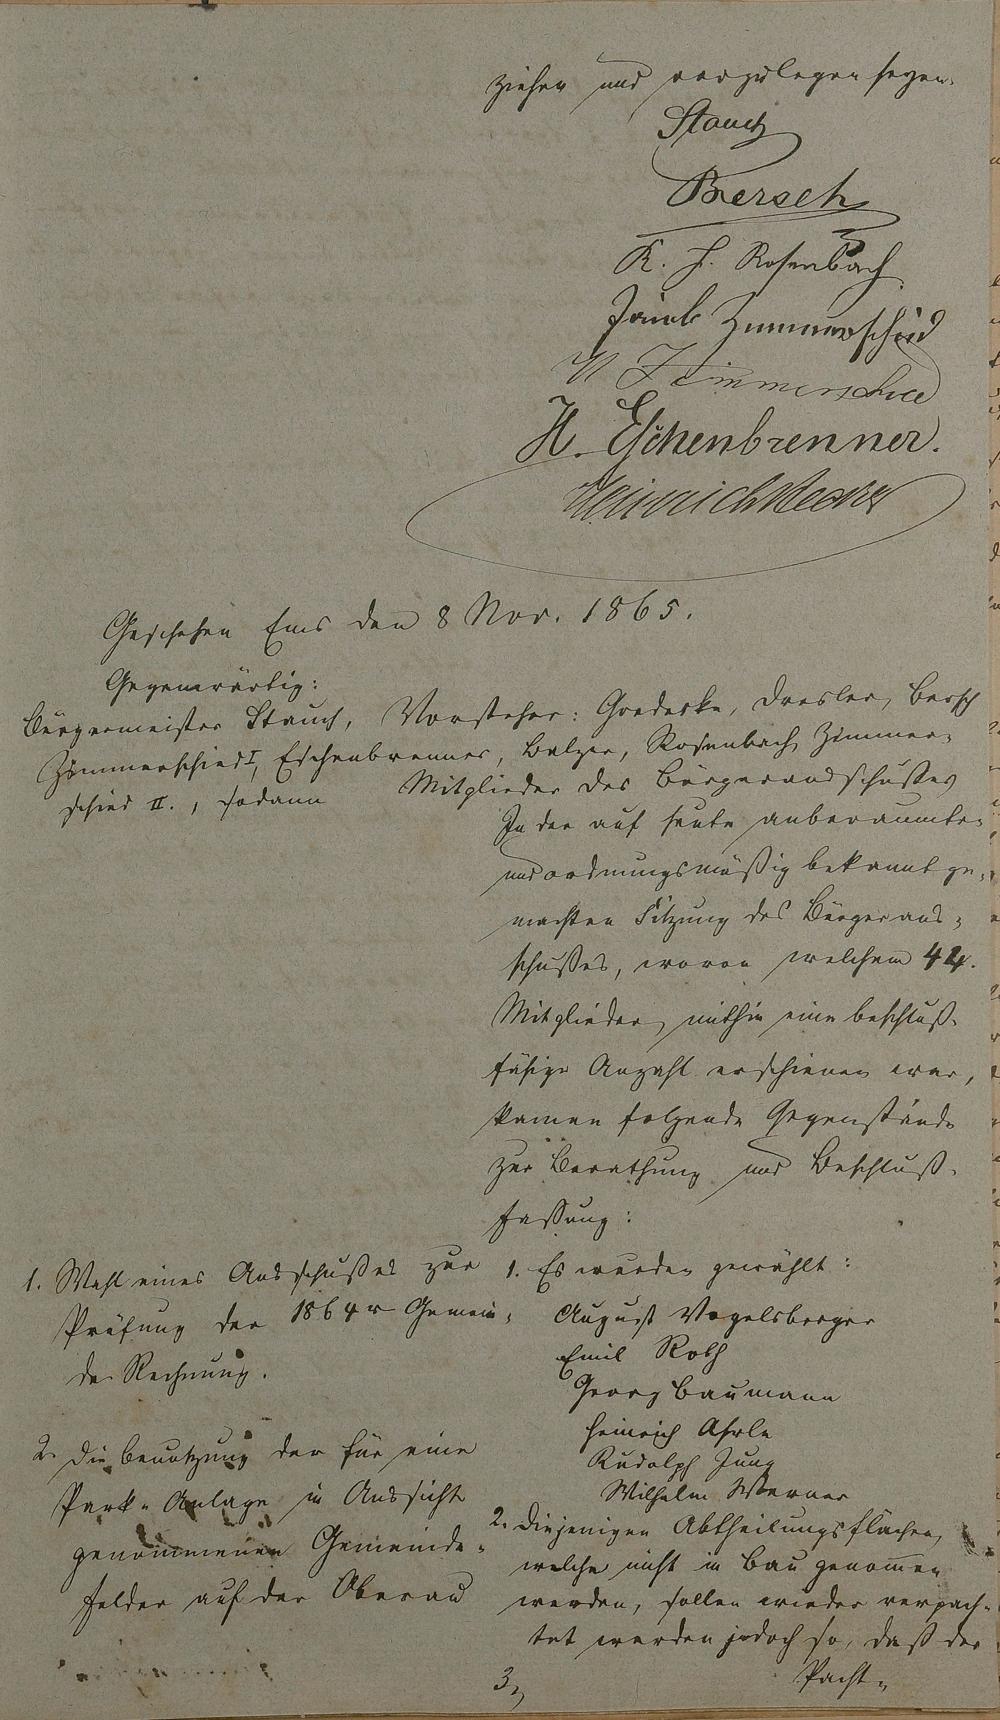 ziehen und vorzulegen seyen.
Stauch
Bersch
K. H. Rosenbach
Jacob Zimmerschied
W Zimmerschied
H. Eschenbrenner.
Heinrich
Geschehen Ems den 8 Nov. 1865.
Gegenwärtig:
Bürgermeister Stauch, Vorsteher: Goedecke, Dresler, Bersch
Zimmerschied I, Eschenbrenner, Balzer, Rosenbach, Zimmer-
schied II., sodann Mitglieder des Bürgerausschußes
In der auf heute anberaumten
und ordnungsmäßig bekannt ge-
machten Sitzung des Bürgeraus-
schußes, wovon welchem 44.
Mitglieder, mithin eine beschluß-
fähige Anzahl erschienen war,
kamen folgende Gegenstände
zur Berathung und Beschluß-
fassung:
1. Wahl eines Ausschußes zur
Prüfung der 1864r Gemein-
de Rechnung.
1. Es wurden gewählt:
August Vogelsberger
Emil Roth
Georg Baumann
Heinrich Ahrle
Rudolph Jung
Wilhelm Werner
2. Die Benutzung der für eine
Park-Anlage in Aussicht
genommenen Gemeinde-
felder auf der Oberau
2. Diejenigen Abtheilungsflächen,
welche nicht in Bau genommen
werden, sollen wieder verpach-
tet werden jedoch so, daß der
Pacht-
3,